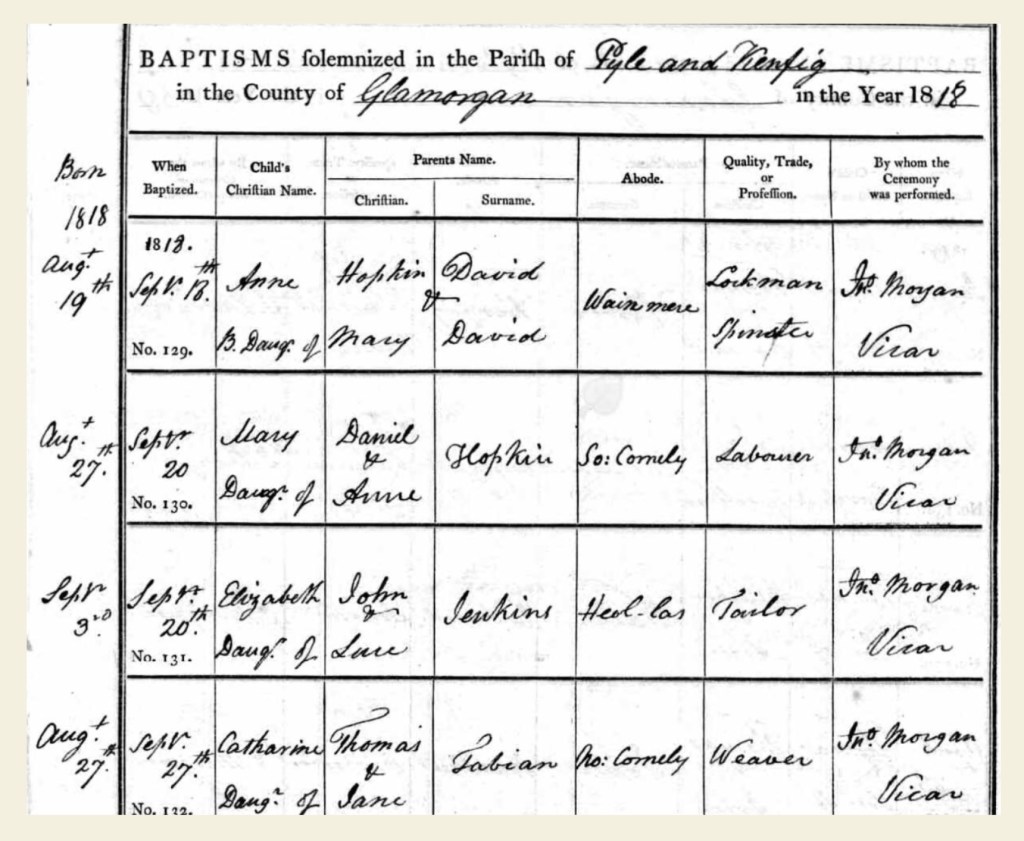 BAPTISMS solemnized in the Parish of Pyle and Kenfig
in the County of Glamorgan in the Year 1818
Born
1818
When
Baptized.
Child's
Christian Name.
Parents Name.
Christian.
Surname.
Abode.
Quality, Trade,
or
Profession.
By whom the
Ceremony
was performed.
Augt
19th
1818.
Sepr. 13th
No. 129.
Anne
B. Daugr. of
Hopkin
&
Mary
David
David
Wainmere
Lockman
Spinster
Jno. Morgan
Vicar
Augt
27th.
Sepr.
20
No. 130.
Mary
Daugr. of
Daniel
&
Anne
Hopkin
So: Cornely
Labourer
Jno. Morgan
Vicar
Sepr
3rd
Sepr.
20th.
No. 131.
Elizabeth
Daugr. of
John
&
Luce
Jenkins
Heol-las
Tailor
Jno. Morgan
Vicar
Augt
27th.
Sepr.
27th.
No. 132.
Catharine
Daugr. of
Thomas
&
Jane
Fabian
No: Cornely
Weaver
Jno. Morgan
Vicar